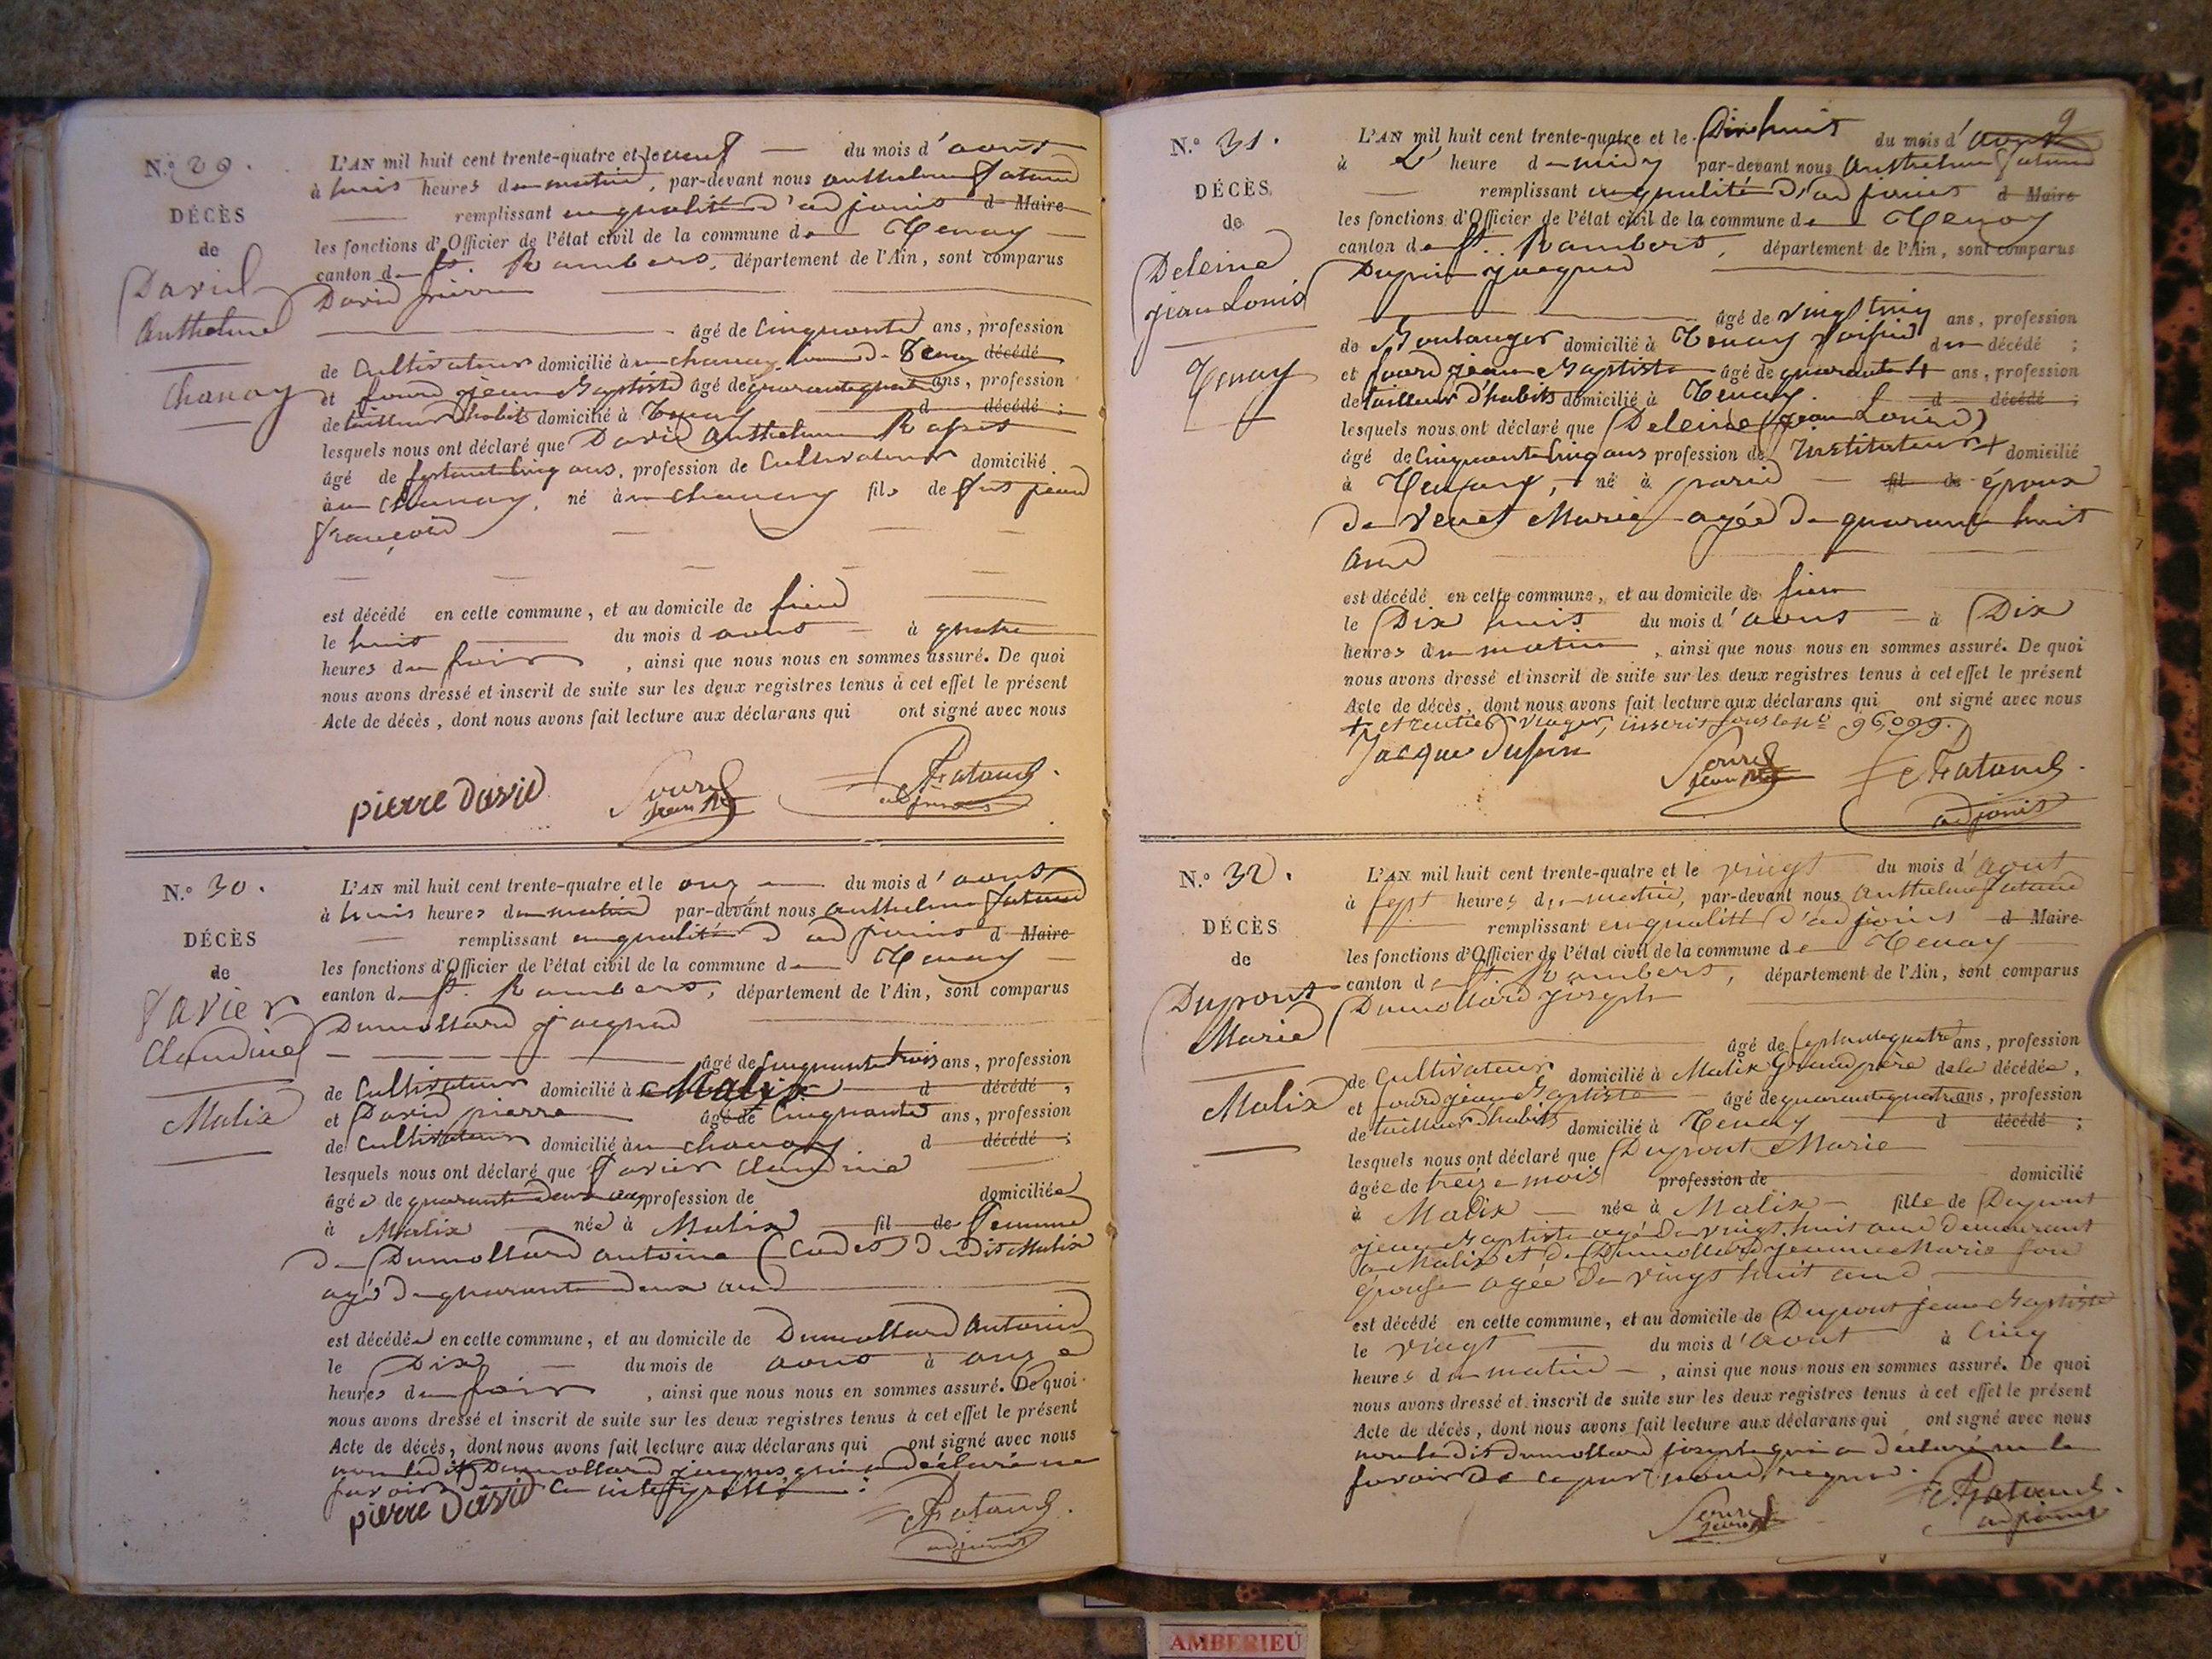 N.º 29.
DÉCÈS
de
David
Anthelme
Chanay
L'AN mil huit cent trente-quatre et le neuf du mois d'aout
à huit heures du matin, par-devant nous anthelme Tatoud
remplissant en qualité d'adjoint d Maire
les fonctions d'Officier de l'état civil de la commune de Tenay
canton de St. Rambert, département de l'Ain, sont comparus
David pierre
âgé de Cinquante ans, profession
de Cultivateur domicilié à chanay de Tenay décédé
et jean Baptiste âgé de quarante quatre ans, profession
de tailleur d'habits domicilié à Tenay d décédé ;
lesquels nous ont déclaré que David Anthelme
âgé de ans, profession de Cultivateur domicilié
à chanay, né à chanay fils de jean
françois
est décédé en cette commune, et au domicile de sien
le huit du mois d aout à quatre
heures du soir, ainsi que nous nous en sommes assuré. De quoi
nous avons dressé et inscrit de suite sur les deux registres tenus à cet effet le présent
Acte de décès, dont nous avons fait lecture aux déclarans qui ont signé avec nous
pierre David
adjoint
N.º 30.
DÉCÈS
de
Claudine
Malix
L'AN mil huit cent trente-quatre et le onze du mois d'aout
à huit heures du matin par-devant nous anthelme Tatoud
remplissant en qualité d'adjoint d Maire
les fonctions d'Officier de l'état civil de la commune de Tenay
canton de St. Rambert, département de l'Ain, sont comparus
Dumollard jacques
âgé de Cinquante trois ans, profession
de Cultivateur domicilié à Malix d décédé ;
et David pierre âgé de Cinquante ans, profession
de Cultivateur domicilié à chanay d décédé ;
lesquels nous ont déclaré que Claudine
âgée de quarante deux ans profession de domiciliée
à Malix née à Malix fil de femme
de Dumollard antoine (Cadet) dudit Malix
agé de quarante deux ans
est décédée en cette commune, et au domicile de Dumollard Antoine
le Dix du mois de aout à onze
heures du soir, ainsi que nous nous en sommes assuré. De quoi
nous avons dressé et inscrit de suite sur les deux registres tenus à cet effet le présent
Acte de décès, dont nous avons fait lecture aux déclarans qui ont signé avec nous
non ledit Dumollard jacques qui a déclaré ne
savoir de ce interpellé
pierre David
adjoint
9
N.º 31.
DÉCÈS
de
Deleine
jean Louis
Tenay
L'AN mil huit cent trente-quatre et le Dix huit du mois d'aout
à heure de midy par-devant nous Anthelme Tatoud
remplissant en qualité d'adjoint d Maire
les fonctions d'Officier de l'état civil de la commune de Tenay
canton de St. Rambert, département de l'Ain, sont comparus
Dupin jacques
âgé de vingt cinq ans, profession
de Boulanger domicilié à Tenay voisin du décédé ;
et jean Baptiste âgé de quarante 4 ans, profession
de tailleur d'habits domicilié à Tenay. d décédé ;
lesquels nous ont déclaré que Deleine (jean Louis)
âgé de Cinquante Cinq ans profession de Instituteur + domicilié
à Tenay, né à paris fil de époux
de Venet Marie agée de quarante huit
ans
est décédé en cette commune, et au domicile de sien
le Dix huit du mois d'aout à Dix
heures du matin, ainsi que nous nous en sommes assuré. De quoi
nous avons dressé et inscrit de suite sur les deux registres tenus à cet effet le présent
Acte de décès, dont nous avons fait lecture aux déclarans qui ont signé avec nous
+ et rentier viager, inscrit sous le nº 96,099.
Jacque dupin
adjoint
N.º 32.
DÉCÈS
de
Dupont
Marie
Malix
L'AN mil huit cent trente-quatre et le vingt du mois d'aout
à sept heures du matin, par-devant nous Anthelme Tatoud
remplissant en qualité d'adjoint d Maire
les fonctions d'Officier de l'état civil de la commune de Tenay
canton de St Rambert, département de l'Ain, sont comparus
Dumollard joseph
âgé de septante quatre ans, profession
de Cultivateur domicilié à Malix Grand père de la décédée,
et jean Baptiste âgé de quarante quatre ans, profession
de tailleur d'habits domicilié à Tenay d décédé ;
lesquels nous ont déclaré que Dupont Marie
âgée de treize mois profession de domicilié
à Malix née à Malix fille de Dupont
jean Baptiste agé de vingt huit ans demeurant
à Malix et de Dumollard jeanne Marie son
épouse agée de vingt huit ans
est décédé en cette commune, et au domicile de Dupont jean Baptiste
le vingt du mois d'aout à cinq
heures du matin, ainsi que nous nous en sommes assuré. De quoi
nous avons dressé et inscrit de suite sur les deux registres tenus à cet effet le présent
Acte de décès, dont nous avons fait lecture aux déclarans qui ont signé avec nous
non ledit dumollard joseph qui a déclaré ne le
savoir de ce par nous requis.
adjoint
AMBERIEU